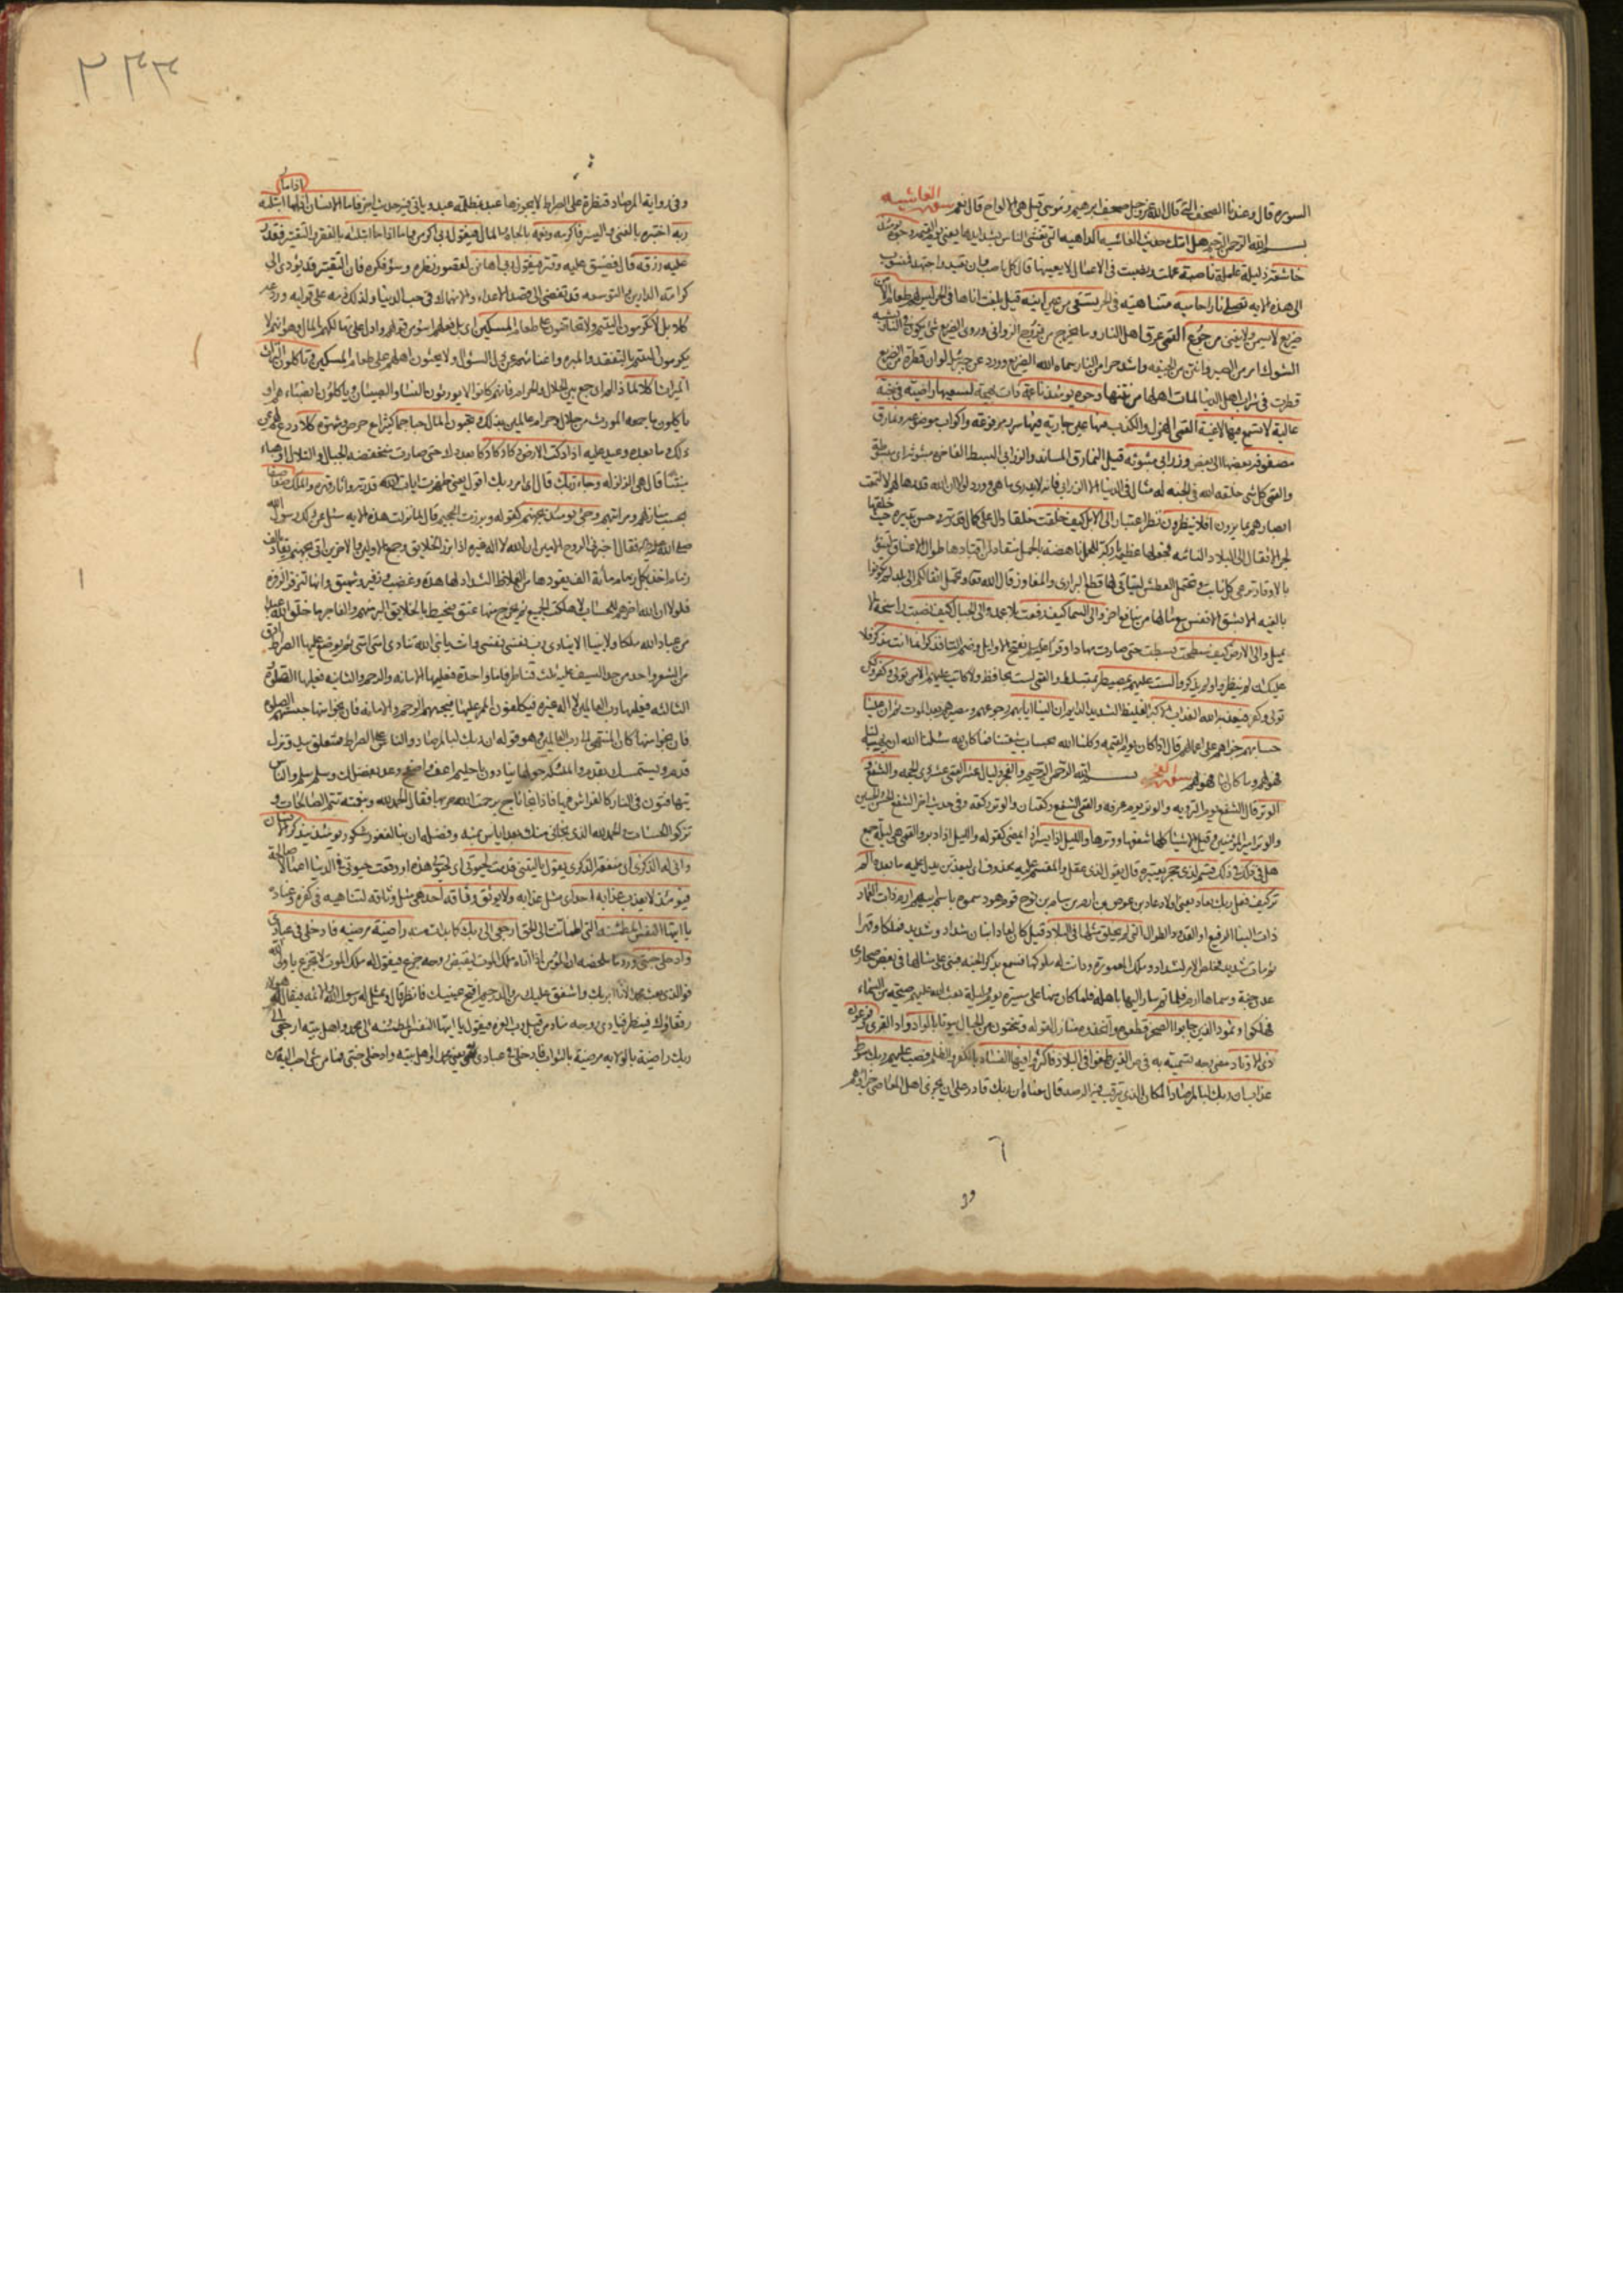 السورة قال وعندنا الصحف التي قال الله عز وجل صحف ابرهيم وموسى قيل هي الالواح قال نعم سورة الغاشيه
بسم الله الرحمن الرحيم هل اتيك حديث الغاشيه الداهيه التي تغشى الناس بشدايدها يعني يوم القيمه وجوه يومئذ
خاشعة ذليلة عاملة ناصبة عملت ونصبت في الاعمال لا يعينها قال كل ناصب وان تعبد واجتهد منسوب
الى هذه الايه تصلى نارا حاميه متناهيه في الحر تسقى من عين انيه قيل بلغت اناها في الحر ليس لهم طعام الا من
ضريع لا يسمن ولا يغني من جوع القمي عرق اهل النار وما يخرج من فروج الزواني وروي الضريع شئ يكون في النار يشبه
الشوك امر من الصبر وانتن من الجيفه واشد حرا من النار سماه الله الضريع وورد عن جبرئيل لو ان قطرة من الضريع
قطرت في شراب اهل الدنيا لمات اهلها من نتنها وجوه يومئذ ناعمة ذات بهجة لسعيها راضية في جنة
عالية لا تسمع فيها لاغية القمي الهزل والكذب فيها عين جارية فيها سرر مرفوعة واكواب موضوعة ونمارق
مصفوفة بعضها الى بعض وزرابي مبثوثة قيل النمارق المساند والزرابي البسط الفاخرة مبثوثة اي مبسوطة
والقمي كل شئ خلقه الله في الجنه له مثال في الدنيا الا الزرابي فانه لا يدرى ما هي وورد لولا ان الله قدرها لهم لالتمعت
ابصارهم بما يرون افلا ينظرون نظر اعتبار الى الابل كيف خلقت خلقا دالا على كمال قدرته وحسن تدبيره حيث خلقها
لجر الاثقال الى البلاد النائيه فجعلها عظيمة باركة للحمل ناهضة بالحمل منقادة لمن اقتادها طوال الاعناق لتنوء
بالاوقار ترعى كل نابت وتحتمل العطش ليتاتى لها قطع البراري والمفاوز قال الله تعالى وتحمل اثقالكم الى بلد لم تكونوا
بالغيه الا بشق الانفس مع ما لها من منافع اخر والى السماء كيف رفعت بلا عمد والى الجبال كيف نصبت راسخة لا
تميل والى الارض كيف سطحت بسطت حتى صارت مهادا وقرا علي بفتح الاوايل وضم التا فذكر انما انت مذكر فلا
عليك ان لم ينظروا ولم يذكروا لست عليهم بمصيطر بمتسلط والقمي لست بحافظ ولا كاتب عليهم الا من تولى وكفر لكن من
تولى وكفر فيعذبه الله العذاب الاكبر الغليظ الشديد الدايم ان الينا ايابهم رجوعهم ومصيرهم بعد الموت ثم ان علينا
حسابهم جزاهم على اعمالهم قال اذا كان يوم القيمه وكلنا الله بحساب شيعتنا فما كان لله سئلنا الله ان يهبه لنا
فهو لهم وما كان لنا فهو لهم سورة الفجر بسم الله الرحمن الرحيم والفجر وليال عشر القمي عشر ذي الحجه والشفع و
الوتر قال الشفع يوم التروية والوتر يوم عرفة والقمي الشفع ركعتان والوتر ركعة وفي حديث اخر الشفع الحسن والحسين
والوتر امير المؤمنين وقيل الاشياء كلها شفعها ووترها والليل اذا يسر اذا يمضي كقوله والليل اذ ادبر والقمي هي ليلة جمع
هل في ذلك في ذلك قسم لذي حجر يعتبره قال يقول لذي عقل والمقسم عليه محذوف اي ليعذبن يدل عليه ما بعده الم
تر كيف فعل ربك بعاد يعني اولاد عاد بن عوص بن ارم بن سام بن نوح قوم هود سموا باسم ابيهم ارم ذات العماد
ذات البناء الرفيع او القدود الطوال التي لم يخلق مثلها في البلاد قيل كان لعاد ابنان شداد وشديد فملكا وقهرا
ثم مات شديد فخلص الامر لشداد وملك المعمورة ودانت له ملوكها فسمع بذكر الجنه فبنى على مثالها في بعض صحارى
عدن جنة وسماها ارم فلما تم سار اليها باهله فلما كان منها على مسيرة يوم وليلة بعث الله عليهم صيحة من السماء
فهلكوا وثمود الذين جابوا الصخر قطعوه واتخذوه منازل لقوله وتنحتون من الجبال بيوتا بالواد واد القرى وفرعون
ذي الاوتاد مضى وجه تسميته به في ص الذين طغوا في البلاد فاكثروا فيها الفساد بالكفر والظلم فصب عليهم ربك سوط
عذاب ان ربك لبالمرصاد المكان الذي يترقب فيه الرصد قال معناه ان ربك قادر على ان يجزي اهل المعاصي جزاءهم
٦
وفي
٢٣٣
وفي رواية المرصاد قنطرة على الصراط لا يجوزها عبد بمظلمة عبد وياتي فيه حديث اخر فاما الانسان اذا ما ابتليه
ربه اختبره بالغنى واليسر فاكرمه ونعمه بالجاه والمال فيقول ربي اكرمن واما اذا ما ابتليه بالفقر والتقتير فقدر
عليه رزقه قال فضيق عليه وقتر فيقول ربي اهانن لقصور نظره وسوء فكره فان التقتير قد يؤدي الى
كرامة الدارين والتوسعة قد تفضي الى قصد الاعداء والانهماك في حب الدنيا ولذلك ذمه على قوليه وردعه
كلا بل لا تكرمون اليتيم ولا تحاضون على طعام المسكين اي بل فعلهم اسوء من قولهم وادل على تهالكهم بالمال وهو انهم لا
يكرمون اليتيم بالتفقد والمبرة واغنائهم عن ذل السؤال ولا يحثون اهلهم على طعام المسكين وتاكلون التراث
الميراث اكلا لما ذا لم اي جمع بين الحلال والحرام فانهم كانوا لا يورثون النساء والصبيان وياكلون انصباءهم او
ياكلون ما جمعه المورث من حلال وحرام عالمين بذلك وتحبون المال حبا جما كثيرا مع حرص وشهوة كلا ردع لهم عن
ذلك وما بعده وعيد عليه اذا دكت الارض دكا دكا دكا بعد دك حتى صارت منخفضة الجبال والتلال او هباء
منبثا قال هي الزلزله وجاء ربك قال اي امر ربك اقول يعني ظهرت ايات الله قدرته واثار قهره والملك صفا صفا
بحسب منازلهم ومراتبهم وجئ يومئذ بجهنم كقوله وبرزت الجحيم قال لما نزلت هذه الايه سئل عن ذلك رسول الله
صلى الله عليه واله فقال اخبرني الروح الامين ان الله لا اله غيره اذا برز الخلايق وجمع الاولين والاخرين اتي بجهنم تقاد بالف
زمام اخذ بكل زمام مائة الف يقودها من الغلاظ الشداد لها هدة وغضب وزفير وشهيق وانها لتزفر الزفرة
فلولا ان الله اخرهم للحساب لاهلكت الجميع ثم يخرج منها عنق فيحيط بالخلايق البر منهم والفاجر ما خلق الله عبدا
من عباد الله ملكا ولا نبيا الا ينادي رب نفسي نفسي وانت يا نبي الله تنادي امتي امتي ثم يوضع عليها الصراط ادق
من الشعر واحد من حد السيف عليه ثلث قناطر فاما واحدة فعليها الامانه والرحم والثانيه فعليها الصلوة و
الثالثه فعليها رب العالمين لا اله غيره فيكلفون الممر عليها فيحبسهم الرحم والامانه فان نجوا منها حبستهم الصلوة
فان نجوا منها كان المنتهى الى رب العالمين وهو قوله ان ربك لبالمرصاد والناس على الصراط فمتعلق بيد وتزل
قدم ويستمسك بقدم والملئكه حولها ينادون يا حليم اعف واصفح وعد بفضلك وسلم سلم والناس
يتهافتون في النار كالفراش فيها فاذا نجا ناج برحمة الله مر بها فقال الحمد لله وبنعمته تتم الصالحات و
تزكو الحسنات والحمد لله الذي نجاني منك بعد اياس بمنه وفضله ان ربنا لغفور شكور يومئذ يتذكر الانسان
وانى له الذكرى اي منفعة الذكرى يقول يا ليتني قدمت لحيوتي اي لحيوتي هذه او وقت حيوتي في الدنيا اعمالا صالحة
فيومئذ لا يعذب عذابه احد اي مثل عذابه ولا يوثق وثاقه احد اي مثل وثاقه لتناهيه في كفره وعناده
يا ايتها النفس المطمئنه التي اطمانت الى الحق ارجعي الى ربك كما بدأت منه راضية مرضيه فادخلي في عبادي
وادخلي جنتي ورد ما ملخصه ان المؤمن اذا اتاه ملك الموت ليقبض روحه جزع فيقول له ملك الموت لا تجزع يا ولي الله
فوالذي بعث محمدا لانا ابر بك واشفق عليك من والد رحيم افتح عينيك فانظر قال ويمثل له رسول الله والائمه فيقال له هؤلاء
رفقاؤك فينظر فينادي روحه مناد من قبل رب العزه فيقول يا ايتها النفس المطمئنه الى محمد واهل بيته ارجعي الى
ربك راضية بالولايه مرضية بالثواب فادخلي في عبادي يعني محمدا واهل بيته وادخلي جنتي فما من شئ احب اليه من